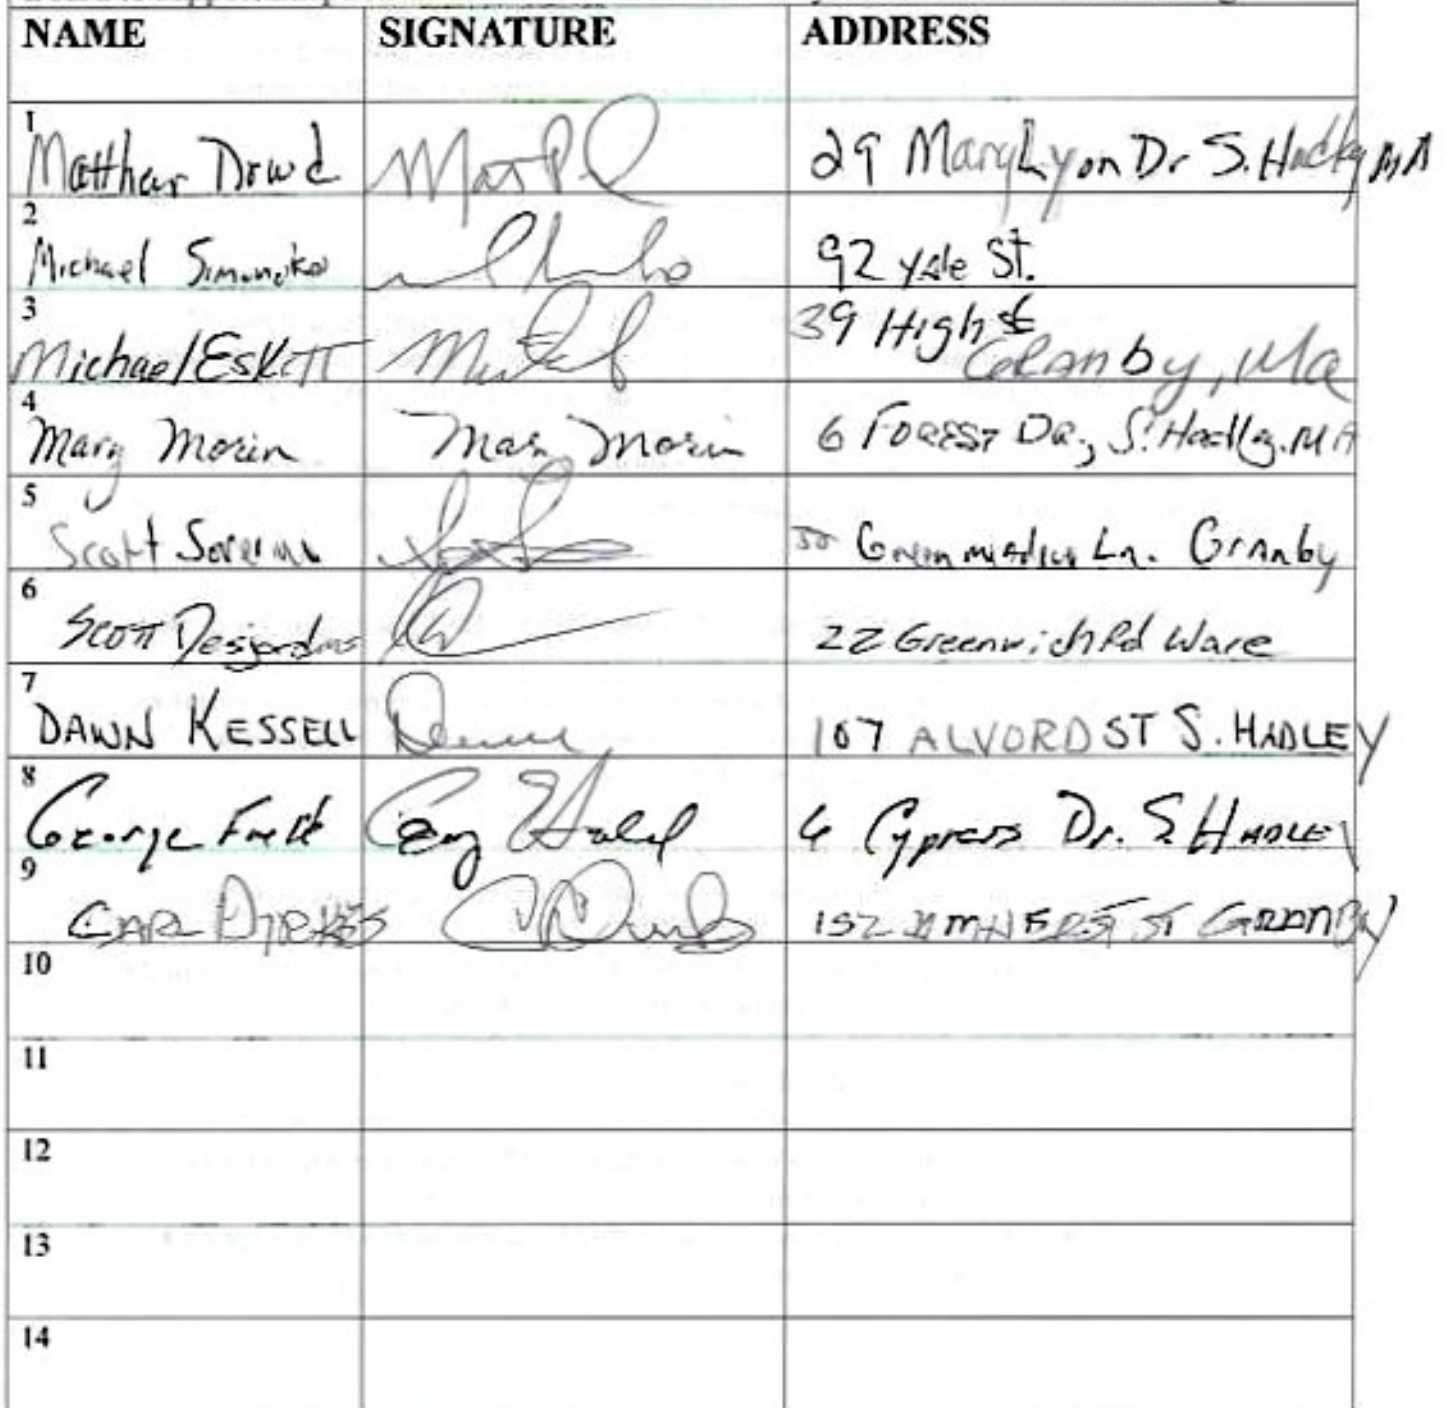 NAME SIGNATURE ADDRESS
1 Matthew Dowd 29 Mary Lyon Dr S. Hadley MA
2 Michael 92 Yale St.
3 Michael Eskett 39 High St
Granby, Ma
4 Mary Morin Mary Morin 6 Forest Dr., S. Hadley. MA
5 Scott Ln. Granby
6 Scott Desjardins 22 Greenwich Rd Ware
7 DAWN KESSELL 107 ALVORD ST S. HADLEY
8 George 6 Cypress Dr. S. HADLEY
9 CARL 152 AMHERST ST GRANBY
10
11
12
13
14